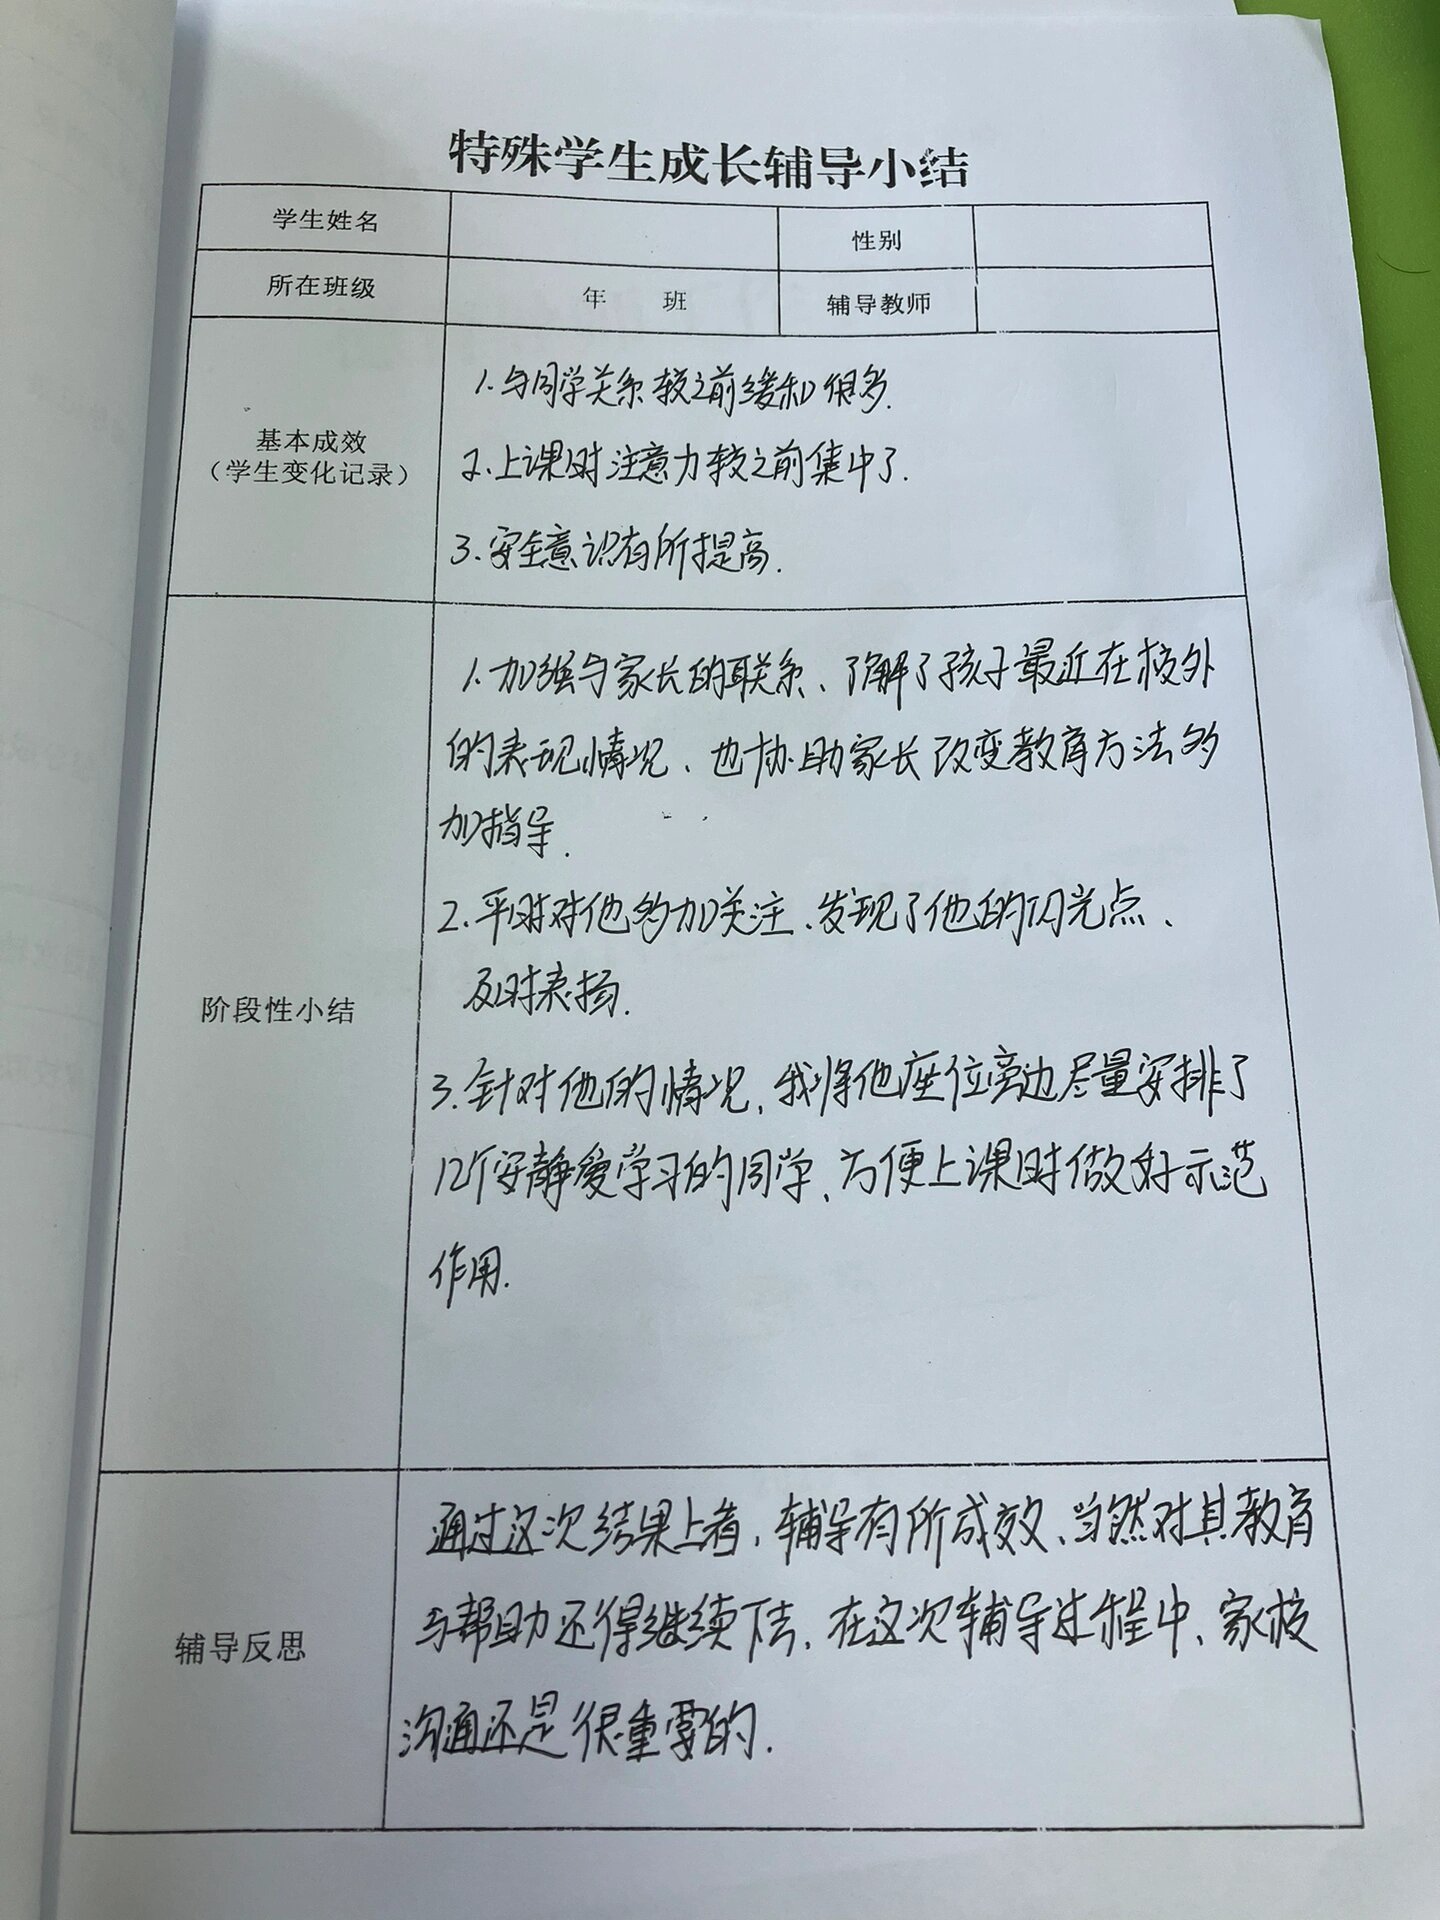 特殊学生成长辅导小结
学生姓名 性别
所在班级 年 班 辅导教师
基本成效
（学生变化记录）
1.与同学关系较之前缓和很多.
2.上课时注意力较之前集中了.
3.安全意识有所提高.
阶段性小结
1.加强与家长的联系、了解了孩子最近在校外
的表现情况、也协助家长改变教育方法多
加指导.
2.平时对他多加关注、发现了他的闪光点、
及时表扬.
3.针对他的情况,我将他座位旁边尽量安排了
12个安静爱学习的同学、方便上课时做好示范
作用.
辅导反思
通过这次结果上看,辅导有所成效、当然对其教育
与帮助还得继续下去,在这次辅导过程中、家校
沟通还是很重要的.